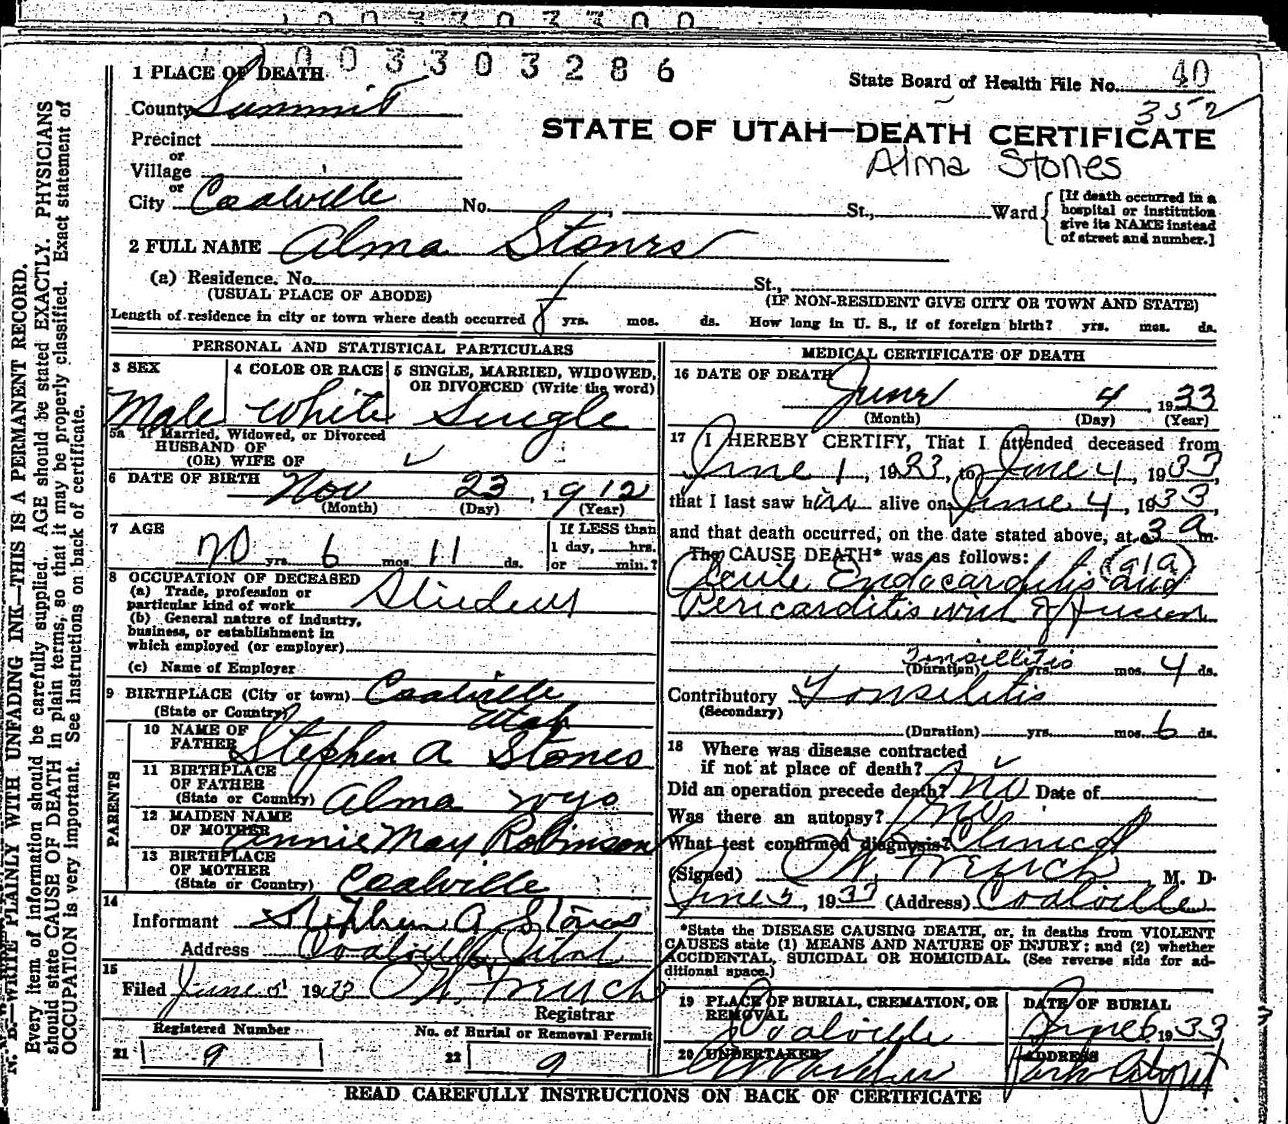 003303300
003303286
1 PLACE OF DEATH
State Board of Health File No. 40
County Summit
352
STATE OF UTAH—DEATH CERTIFICATE
Precinct
or
Village
Alma Stones
or
City Coalville No. , St., Ward
[If death occurred in a
hospital or institution
give its NAME instead
of street and number.]
2 FULL NAME Alma Stones
(a) Residence. No. St.,
(USUAL PLACE OF ABODE) (IF NON-RESIDENT GIVE CITY OR TOWN AND STATE)
Length of residence in city or town where death occurred yrs. mos. ds. How long in U. S., if of foreign birth? yrs. mos. ds.
PERSONAL AND STATISTICAL PARTICULARS
3 SEX 4 COLOR OR RACE 5 SINGLE, MARRIED, WIDOWED,
OR DIVORCED (Write the word)
Male White Single
5a If Married, Widowed, or Divorced
HUSBAND OF
(OR) WIFE OF
6 DATE OF BIRTH Nov 23, 1912
(Month) (Day) (Year)
7 AGE If LESS than
1 day, hrs.
20 yrs. 6 mos. 11 ds. or min.?
8 OCCUPATION OF DECEASED
(a) Trade, profession or
particular kind of work Student
(b) General nature of industry,
business, or establishment in
which employed (or employer)
(c) Name of Employer
9 BIRTHPLACE (City or town) Coalville
(State or Country) Utah
PARENTS
10 NAME OF
FATHER Stephen A Stones
11 BIRTHPLACE
OF FATHER
(State or Country) Alma Wyo
12 MAIDEN NAME
OF MOTHER Annie May Robinson
13 BIRTHPLACE
OF MOTHER
(State or Country) Coalville
14
Informant Stephen A Stones
Address Coalville, Utah
15
Filed June 5 1933
Registrar
Registered Number No. of Burial or Removal Permit
21 9 22 9
MEDICAL CERTIFICATE OF DEATH
16 DATE OF DEATH June 4, 1933
(Month) (Day) (Year)
17 I HEREBY CERTIFY, That I attended deceased from
June 1, 1933, to June 4, 1933
that I last saw him alive on June 4, 1933
and that death occurred, on the date stated above, at 3 a m.
The CAUSE DEATH* was as follows: 91a
Acute Endocarditis and
Pericarditis with Effusion
Tonsillitis
(Duration) yrs. mos. 4 ds.
Contributory Tonsilitis
(Secondary)
(Duration) yrs. mos. 6 ds.
18 Where was disease contracted
if not at place of death?
Did an operation precede death? No Date of
Was there an autopsy? No
What test confirmed diagnosis? Clinical
(Signed) M. D.
June 5, 1933 (Address) Coalville
*State the DISEASE CAUSING DEATH, or, in deaths from VIOLENT
CAUSES state (1) MEANS AND NATURE OF INJURY; and (2) whether
ACCIDENTAL, SUICIDAL OR HOMICIDAL. (See reverse side for ad-
ditional space.)
19 PLACE OF BURIAL, CREMATION, OR
REMOVAL
Coalville
DATE OF BURIAL
June 6, 1933
20 UNDERTAKER
ADDRESS
Park City Ut
READ CAREFULLY INSTRUCTIONS ON BACK OF CERTIFICATE
N. B.—WRITE PLAINLY WITH UNFADING INK—THIS IS A PERMANENT RECORD.
Every item of information should be carefully supplied. AGE should be stated EXACTLY. PHYSICIANS
should state CAUSE OF DEATH in plain terms, so that it may be properly classified. Exact statement of
OCCUPATION is very important. See instructions on back of certificate.